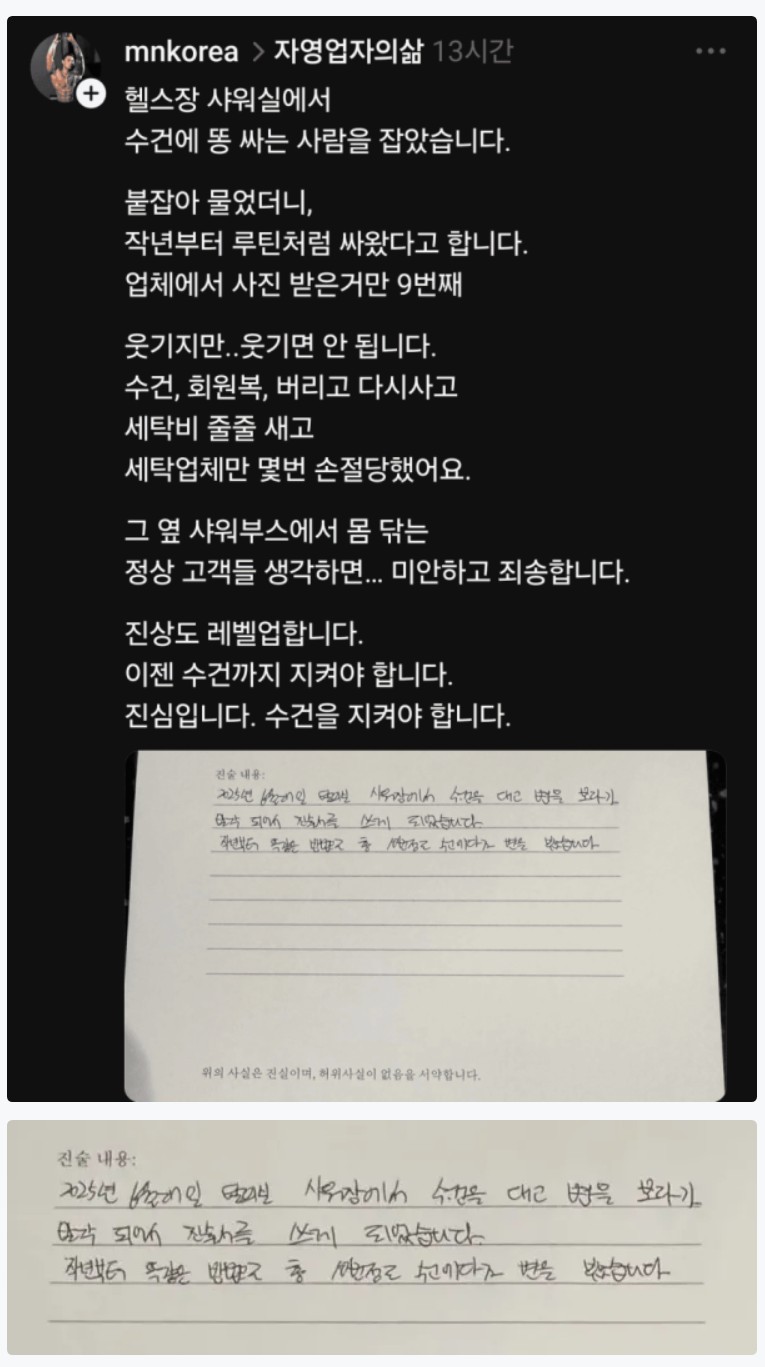 mnkorea > 자영업자의삶 13시간
헬스장 샤워실에서
수건에 똥 싸는 사람을 잡았습니다.
붙잡아 물었더니,
작년부터 루틴처럼 싸왔다고 합니다.
업체에서 사진 받은거만 9번째
웃기지만..웃기면 안 됩니다.
수건, 회원복, 버리고 다시사고
세탁비 줄줄 새고
세탁업체만 몇번 손절당했어요.
그 옆 샤워부스에서 몸 닦는
정상 고객들 생각하면... 미안하고 죄송합니다.
진상도 레벨업합니다.
이젠 수건까지 지켜야 합니다.
진심입니다. 수건을 지켜야 합니다.
진술 내용:
2025년 샤워장에서 수건을 대고 변을 보다가
발각 되어서 진술서를 쓰게 되었습니다
작년부터 똑같은 방법으로 총 수건에다가 변을 봤습니다
위의 사실은 진실이며, 허위사실이 없음을 서약합니다.
진술 내용:
2025년 샤워장에서 수건을 대고 변을 보다가
발각 되어서 진술서를 쓰게 되었습니다
작년부터 똑같은 방법으로 총 수건에다가 변을 봤습니다